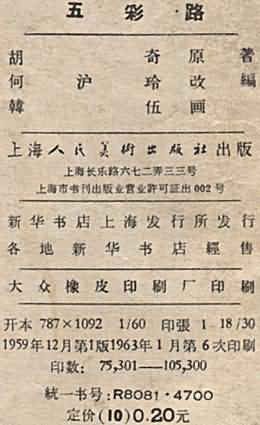 五彩路
胡奇原著
何沪玲改編
韓伍画
上海人民美術出版社出版
上海长乐路六七二弄三三号
上海市书刊出版业营业許可証出002号
新华书店上海发行所发行
各地新华书店經售
大众橡皮印刷厂印刷
开本 787×1092 1/60 印張 1 18/30
1959年12月第1版1963年1月第6次印刷
印数: 75,301——105,300
統一书号: R8081·4700
定价(10)0.20元